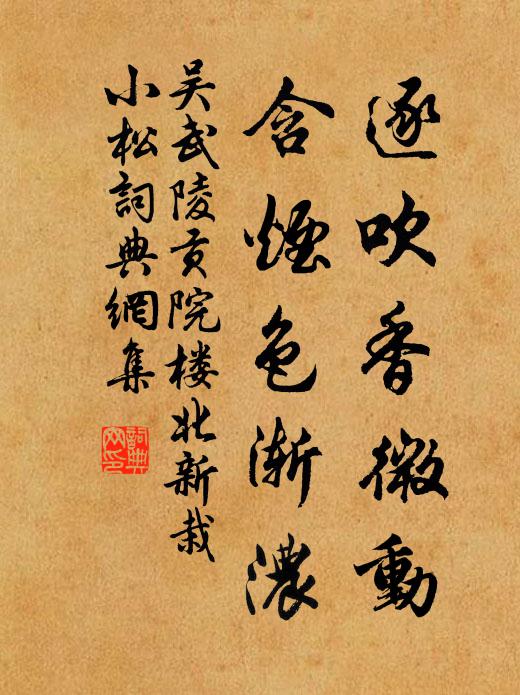 逐吹香微動
含煙色漸濃
吴武陵贡院楼北新栽
小松詞典網集
詞典网印